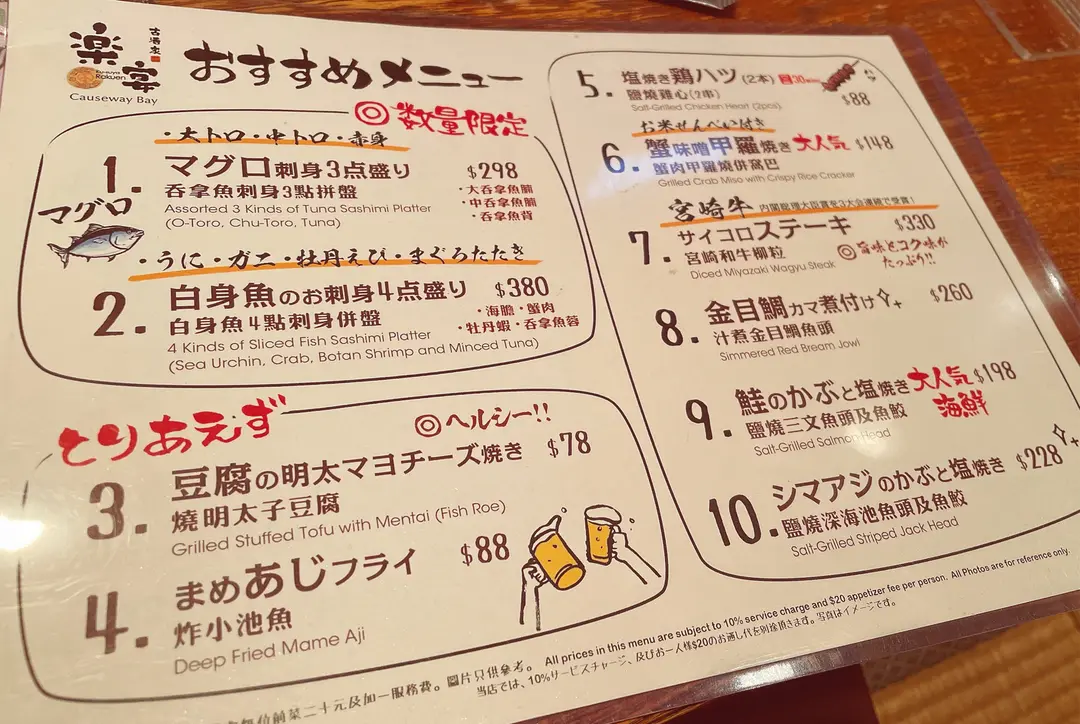 古酒家
楽宴
Ku-suya
Rakuen
Causeway Bay
おすすめメニュー
◎数量限定
・大トロ・中トロ・赤身
1. マグロ刺身3点盛り $298
吞拿魚刺身3點拼盤
Assorted 3 Kinds of Tuna Sashimi Platter
(O-Toro, Chu-Toro, Tuna)
・大吞拿魚腩
・中吞拿魚腩
・吞拿魚背
マグロ
・うに・ガニ・牡丹えび・まぐろたたき
2. 白身魚のお刺身4点盛り $380
白身魚4點刺身併盤
4 Kinds of Sliced Fish Sashimi Platter
(Sea Urchin, Crab, Botan Shrimp and Minced Tuna)
・海膽・蟹肉
・牡丹蝦・吞拿魚蓉
とりあえず
◎ヘルシー!!
3. 豆腐の明太マヨチーズ焼き $78
燒明太子豆腐
Grilled Stuffed Tofu with Mentai (Fish Roe)
4. まめあじフライ $88
炸小池魚
Deep Fried Mame Aji
5. 塩焼き鶏ハツ(2本) $88
鹽燒雞心(2串)
Salt-Grilled Chicken Heart (2pcs)
お米せんべい付き
6. 蟹味噌甲羅焼き 大人気 $148
蟹肉甲羅燒併窩巴
Grilled Crab Miso with Crispy Rice Cracker
宮崎牛 内閣総理大臣賞を3大会連続で受賞!
7. サイコロステーキ $330
宮崎和牛柳粒
Diced Miyazaki Wagyu Steak
◎旨味とコク味が
たっぷり!!
8. 金目鯛カマ煮付け $260
汁煮金目鯛魚頭
Simmered Red Bream Jowl
9. 鮭のかぶと塩焼き 大人気 $198
海鮮
鹽燒三文魚頭及魚鮫
Salt-Grilled Salmon Head
10. シマアジのかぶと塩焼き $228
鹽燒深海池魚頭及魚鮫
Salt-Grilled Striped Jack Head
前菜二十元及加一服務費。圖片只供參考。 All prices in this menu are subject to 10% service charge and $20 appetizer fee per person. All Photos are for reference only.
当店では、10%サービスチャージ、及びお一人様$20のお通し代を別途頂きます。写真はイメージです。